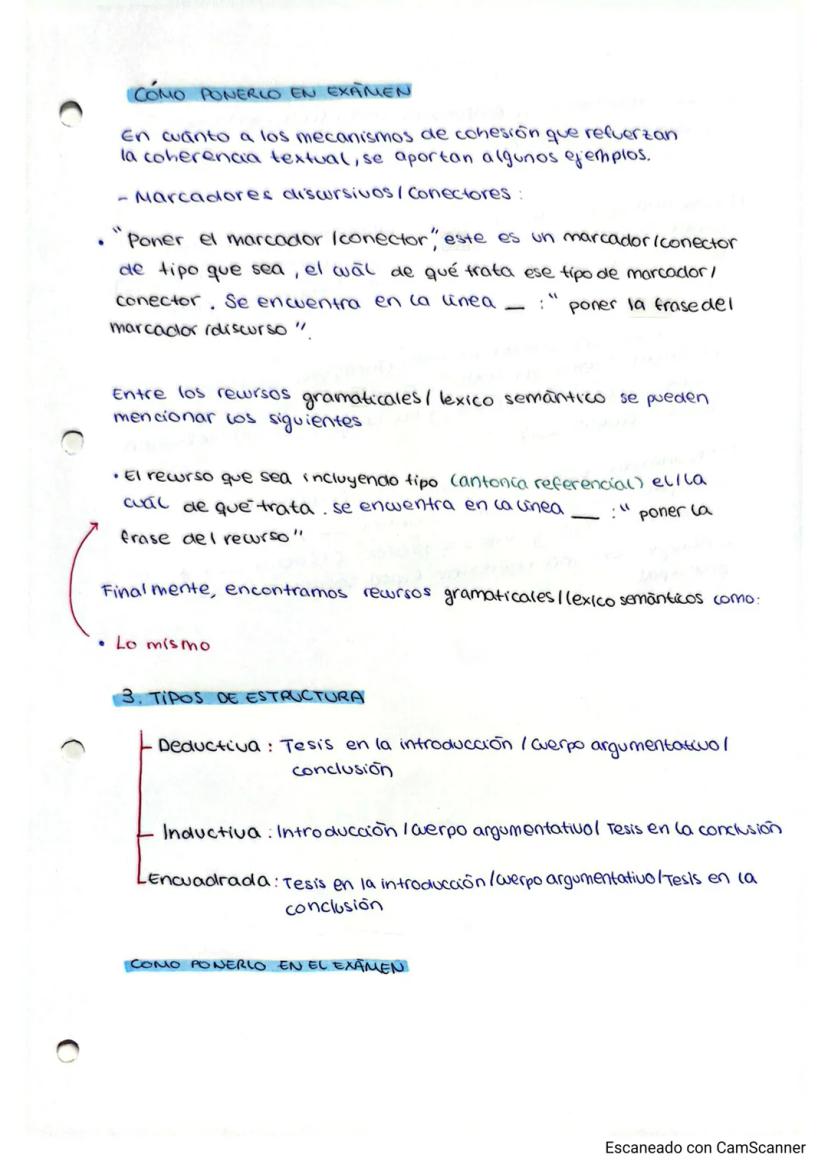 CÓMO PONERLO EN EXÁMEN
En cuánto a los mecanismos de cohesión que refuerzan
la coherencia textual, se aportan algunos ejemplos.
- Marcadores discursivos / Conectores :
• "Poner el marcador / conector", este es un marcador / conector
de tipo que sea, el cuál de qué trata ese tipo de marcador /
conector. Se encuentra en la línea _ : " poner la frase del
marcador / discurso ".
Entre los recursos gramaticales / lexico semántico se pueden
mencionar los siguientes
• El recurso que sea incluyendo tipo (antonia referencial) el / la
cuál de qué trata. se encuentra en la línea _ : " poner la
frase del recurso"
Finalmente, encontramos recursos gramaticales / lexico semánticos como:
• Lo mismo
3. TIPOS DE ESTRUCTURA
Deductiva : Tesis en la introducción / Cuerpo argumentativo /
conclusión
Inductiva : Introducción / Cuerpo argumentativo / Tesis en la conclusión
Encuadrada : Tesis en la introducción / Cuerpo argumentativo / Tesis en la
conclusión
COMO PONERLO EN EL EXÁMEN
Escaneado con CamScanner